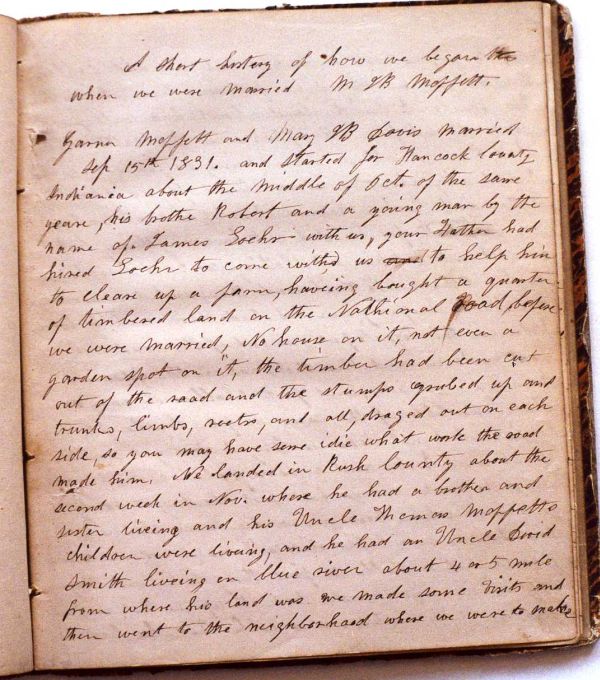 A short history of how we began the
when we were married M JB Moffett.
Garner Moffett and Mary JB Davis married
Sep 15th 1831. and started for Hancock County
Indiania about the middle of Oct. of the same
yeare, his brothe Robert and a young man by the
name of James Loehr with us, your Father had
hired Loehr to come with us and to help him
to cleare up a farm, haveing bought a quarter
of timbered land on the Nathional Road, before
we were married, No house on it, not even a
garden spot on it, the timber had been cut
out of the road and the stumps grubed up and
trunks, limbs, rootrs, and all, draged out on each
side, so you may have some idie what work the road
made him. We landed in Rush County about the
second week in Nov. where he had a brother and
sister liveing and his Uncle Thomas Moffetts
children were liveing, and he had an Uncle David
Smith liveing on blue river about 4 or 5 mile
from where his land was we made some visits and
then went to the neighborhood where we were to make